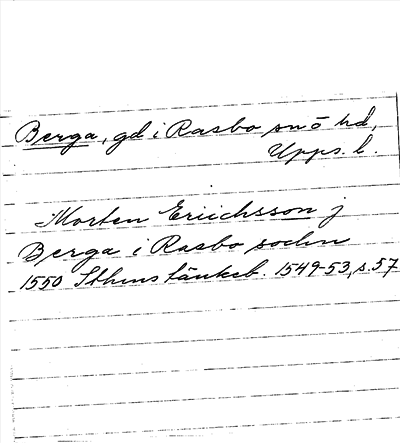 Berga, gd i Rasbo sn o hd,
Upps. l.
Morten Eriichsson j
Berga i Rasbo sochn
1550 Sthms tänkeb. 1549-53, s. 57